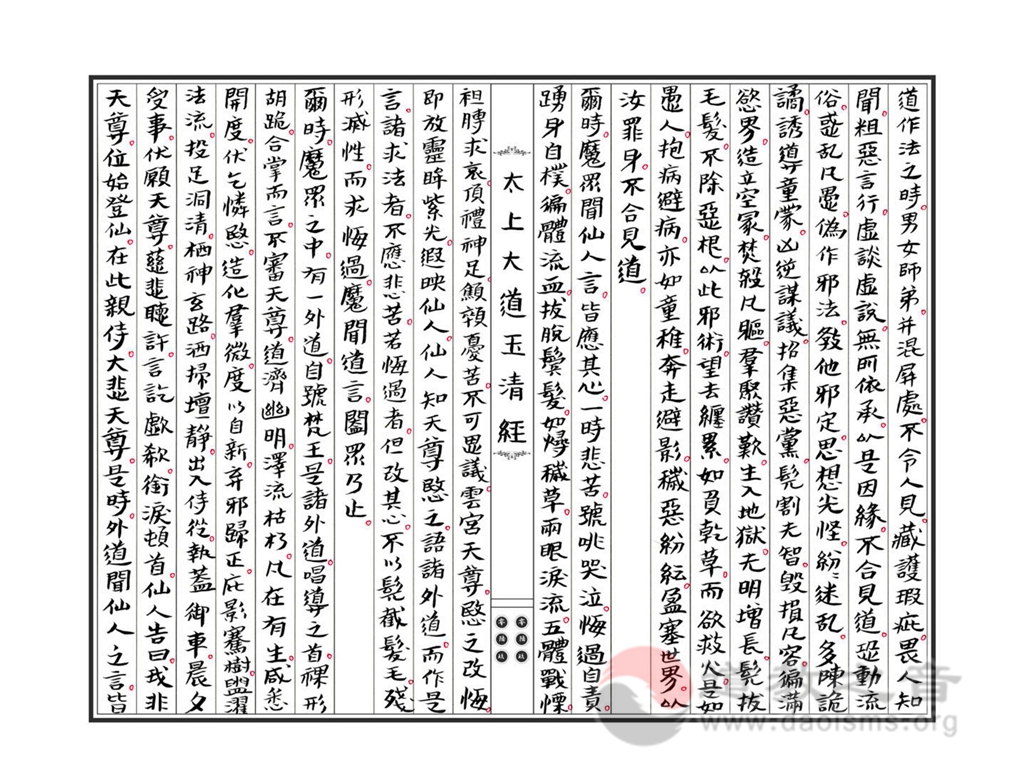 道作法之時。男女師弟。并混屏處。不令人見。藏護瑕疵。畏人知
聞。粗惡言行。虛談虛說。無所依承。以是因緣。不合見道。恐動流
俗。惑乱凡愚。偽作邪法。教他邪定。思想光怪。紛紛迷乱。多陳詭
譎。誘導童蒙。凶逆謀議。招集惡黨。髡割无智。毀損凡容。徧滿
慾界。造立空冢。焚殺凡軀。羣聚讚歎。生入地獄。无明增長。髡拔
毛髮。不除惡根。以此邪術。望去纏累。如負乾草。而欲救火。是如
愚人。抱病避病。亦如童稚。奔走避影。穢惡紛紜。盈塞世界。以
汝罪身。不合見道。
爾時。魔眾聞仙人言。皆應其心。一時悲苦。號咷哭泣。悔過自責。
踴身自撲。徧體流血。拔脫鬢髮。如燖穢草。兩眼淚流。五體戰慄。
太上大道玉清經
袒膊求哀。頂禮神足。顦顇憂苦。不可思議。雲宮天尊。愍之改悔。
即放靈眸。紫光遐映。仙人。仙人知天尊愍之。語諸外道。而作是
言。諸求法者。不應悲苦。若悔過者。但改其心。不以髡截髮毛。殘
形滅性。而求悔過。魔聞道言。闔眾乃止。
爾時。魔眾之中。有一外道。自號梵王。是諸外道唱導之首。裸形
胡跪。合掌而言。不審天尊。道濟幽明。澤流枯朽。凡在有生。咸悉
開度。伏乞憐愍。造化羣微。度以自新。弃邪歸正。庇影騫樹。盥濯
法流。投足洞清。栖神玄路。洒掃壇靜。出入侍從。執蓋御車。晨夕
受事。伏願天尊。慈悲聽許。言訖歔欷。銜淚頓首。仙人告曰。我非
天尊。位始登仙。在此親侍。大悲天尊。是時。外道聞仙人之言。皆
道教之音
www.daoisms.org